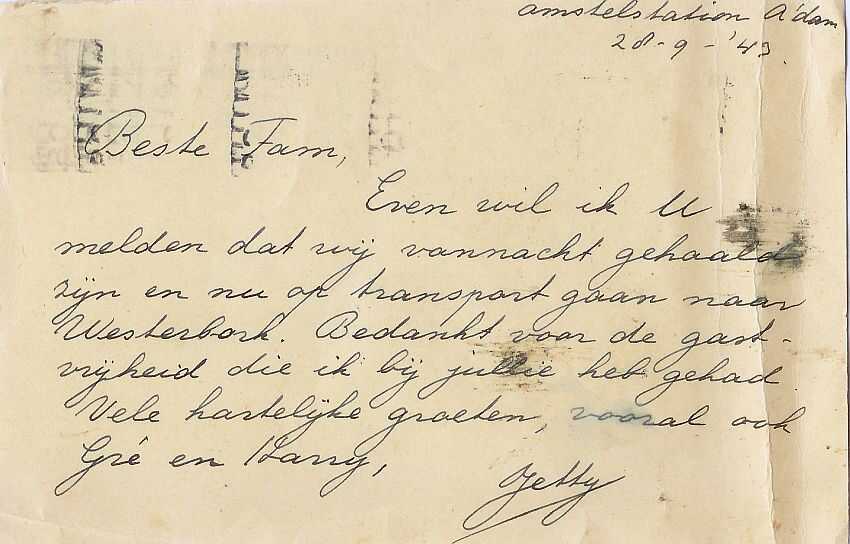 Amstelstation A'dam
28-9-'43.
Beste Fam,
Even wil ik U
melden dat wij vannacht gehaald
zijn en nu op transport gaan naar
Westerbork. Bedankt voor de gast-
vrijheid die ik bij jullie heb gehad.
Vele hartelijke groeten, vooral ook
Gré en Harry,
Jetty